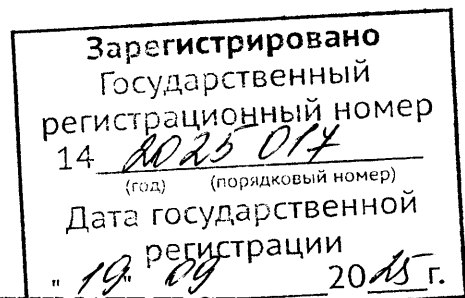 Зарегистрировано
Государственный
регистрационный номер
14 2025 017
(год) (порядковый номер)
Дата государственной
регистрации
"19" 09 2025 г.